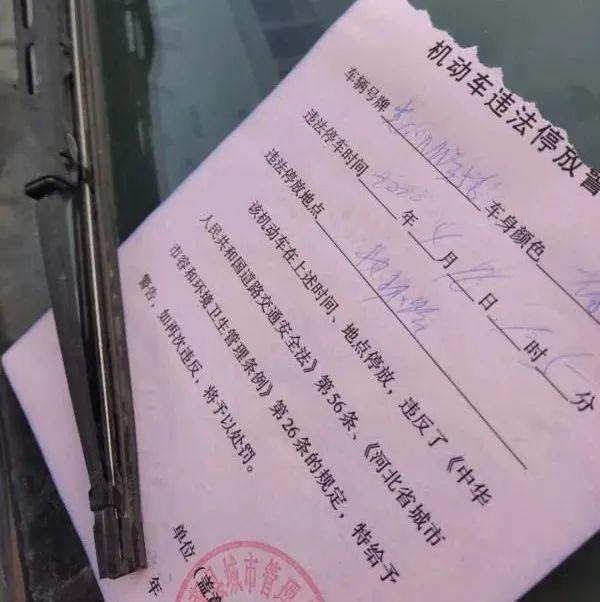 机动车违法停放警
车辆号牌 车身颜色
违法停车时间 2020 年 月 日 时 分
违法停放地点
该机动车在上述时间、地点停放，违反了《中华
人民共和国道路交通安全法》第56条、《河北省城市
市容和环境卫生管理条例》第26条的规定，特给予
警告，如再次违反，将予以处罚。
单位（盖章
县城市管理
年